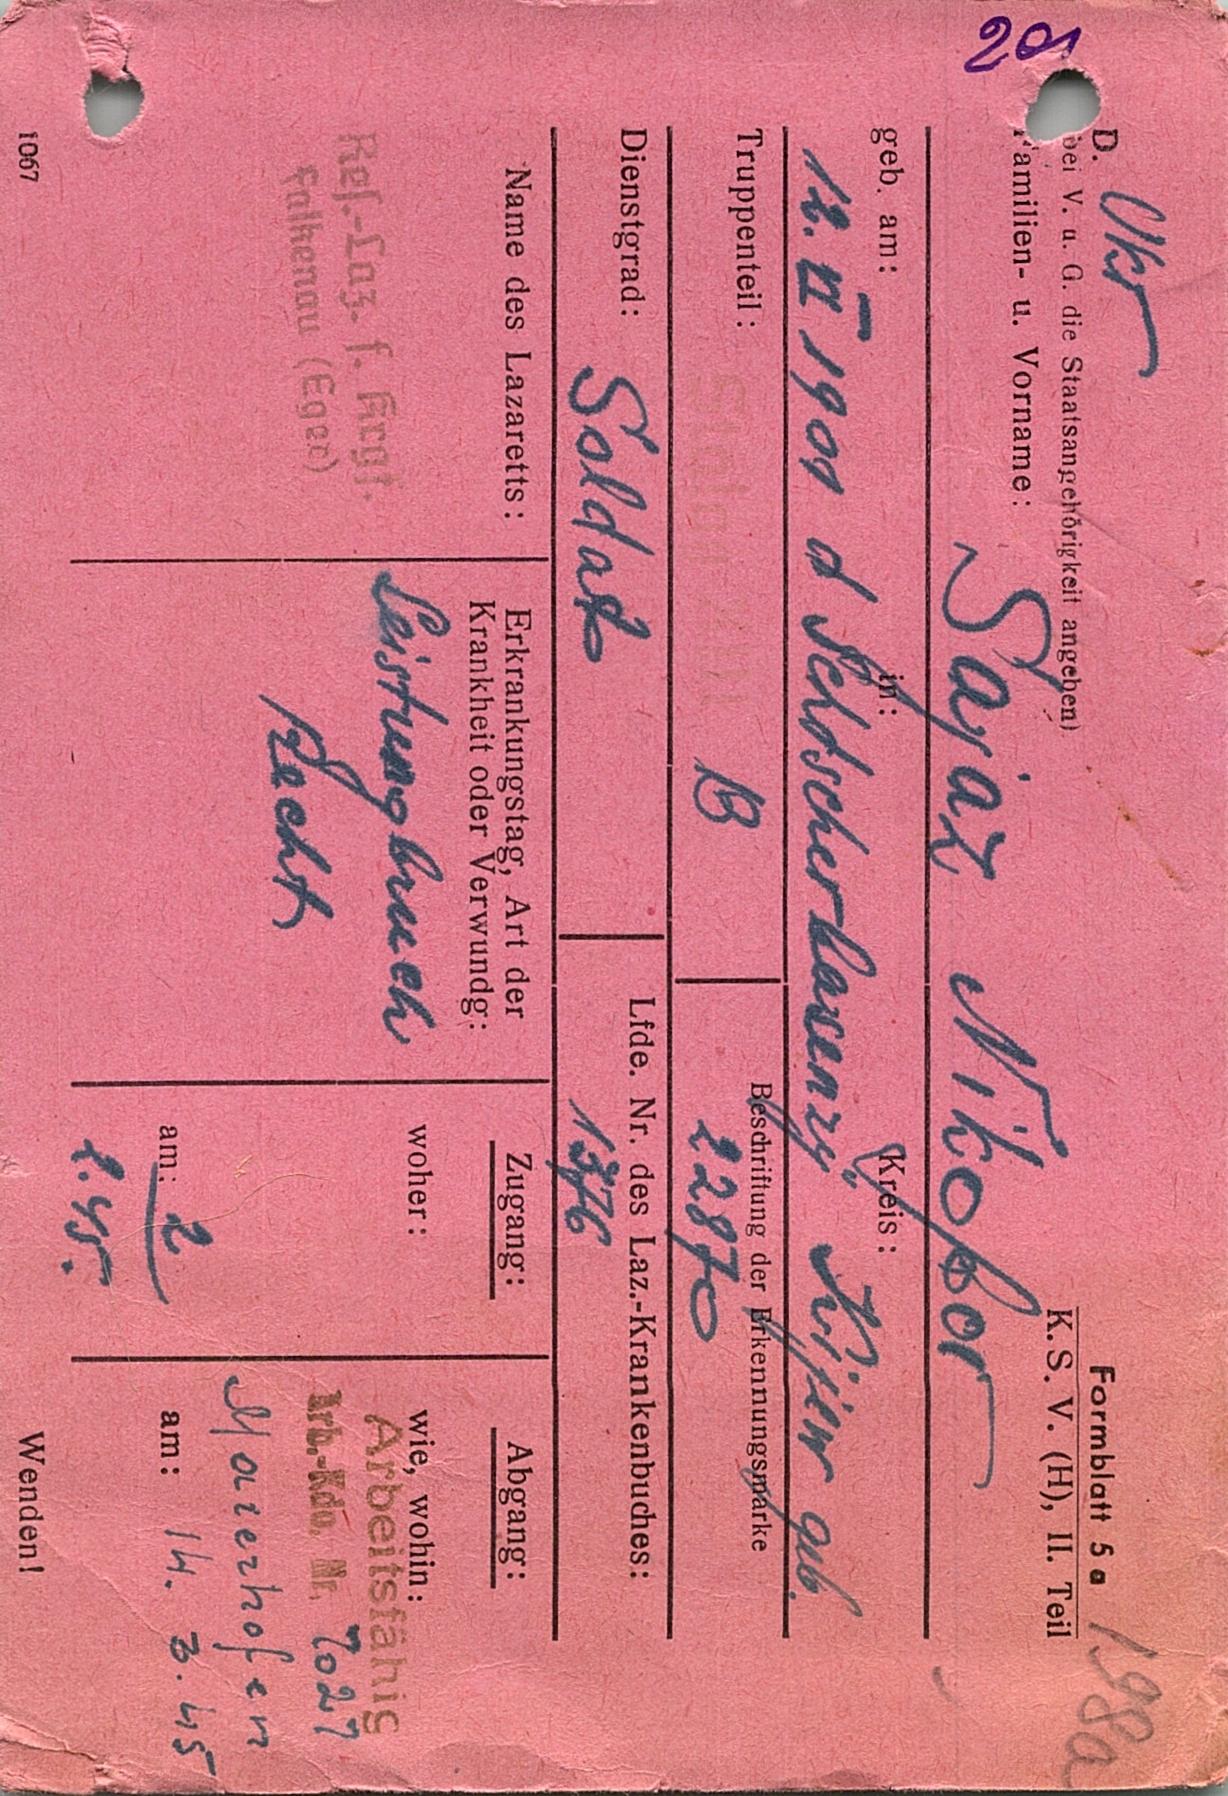 20
Formblatt 5 a
198a
K. S. V. (H), II. Teil
D. Ukr
bei V. u. G. die Staatsangehörigkeit angeben)
Familien- u. Vorname:
Sajaz Nikofor
geb. am: in: Kreis:
12. II 1901 d Kijew geb.
Truppenteil: Beschriftung der Erkennungsmarke
Stalag XIII B 22870
Dienstgrad: Lfde. Nr. des Laz.-Krankenbuches:
Soldat 1376
Name des Lazaretts:
Erkrankungstag, Art der
Krankheit oder Verwundg:
Zugang:
Abgang:
Res.-Laz. f. Krgf.
Falkenau (Eger)
Leistungbruch
Recht
woher:
am: 2
2.45.
wie, wohin:
Arbeitsfähig
Arb.-Kdo. Nr. 7027
Maierhofen
am: 14. 3. 45
1067
Wenden!